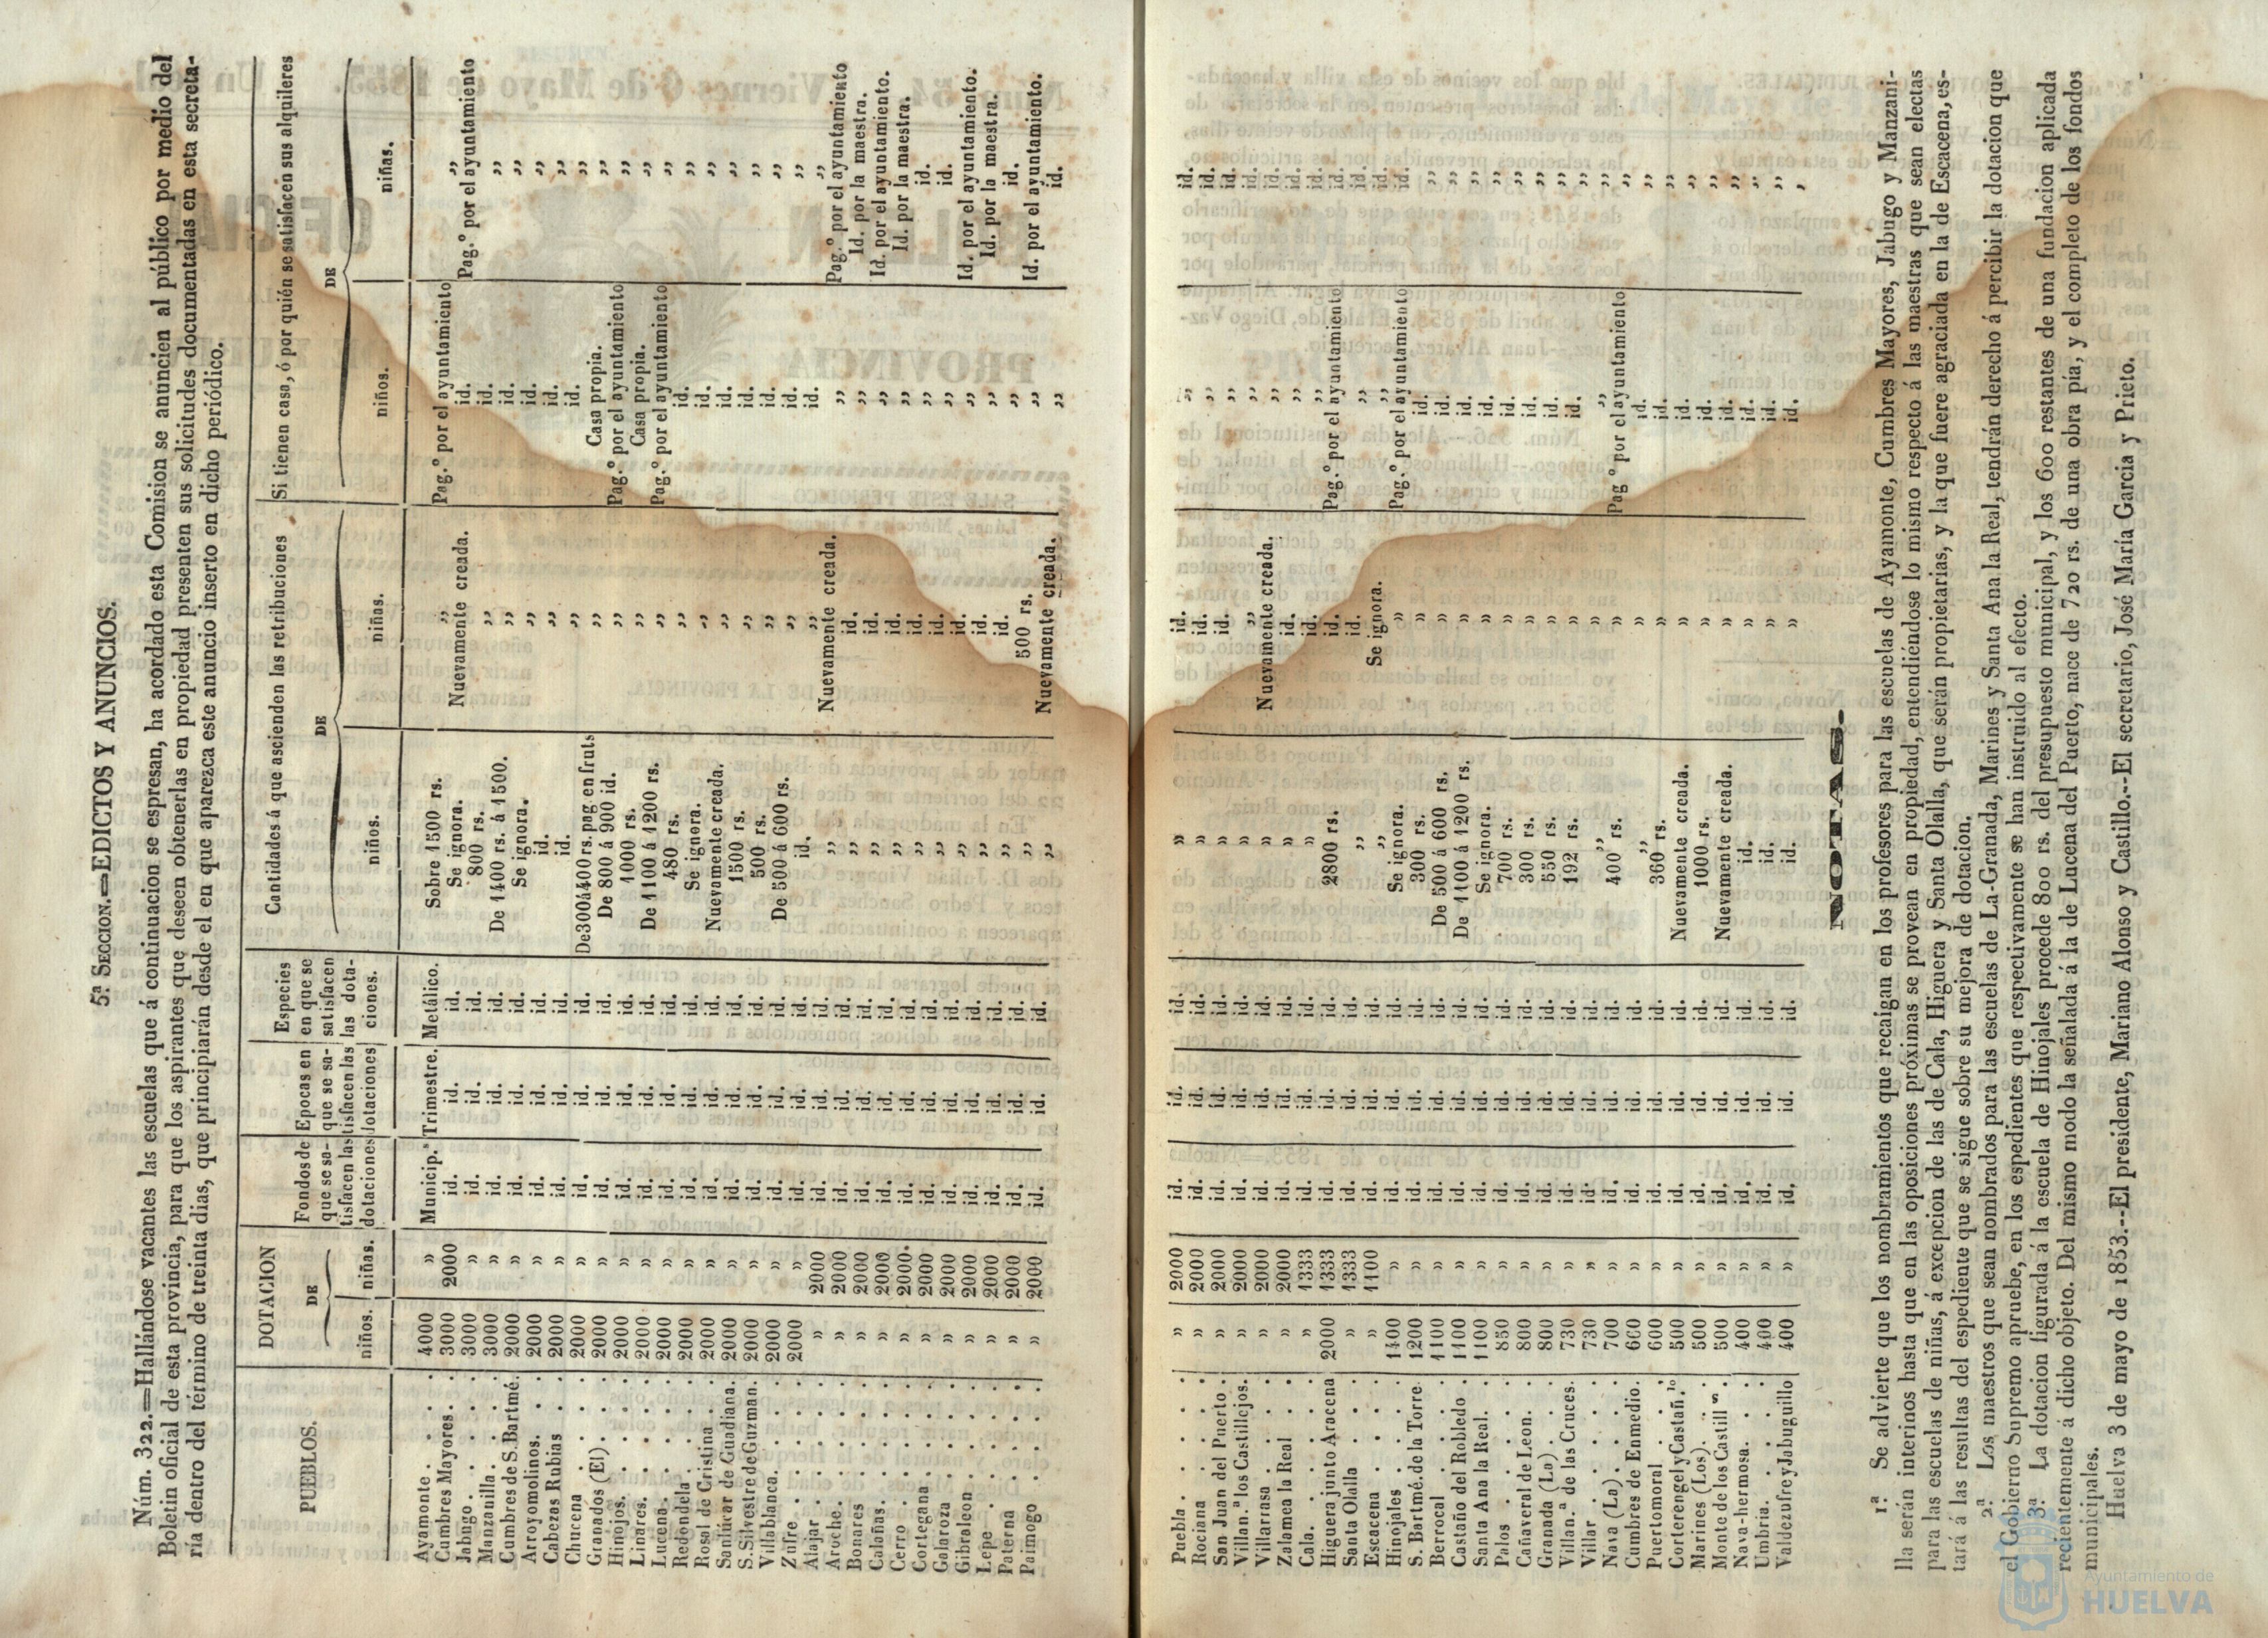 5.ª SECCION.=EDICTOS Y ANUNCIOS.
Núm. 322.=Hallándose vacantes las escuelas que á continuacion se espresan, ha acordado esta Comision se anuncien al público por medio del
Bolein oficial de esta provincia, para que los aspirantes que deseen obtenerlas en propiedad presenten sus solicitudes documentadas en esta secreta-
ría dentro del término de treinta dias, que principiarán desde el en que aparezca este anuncio inserto en dicho periódico.
PUEBLOS. | DOTACION DE niños. niñas. | Fondos de que se satisfacen las dotaciones | Epocas en que se satisfacen las dotaciones | Especies en que se satisfacen las dotaciones. | Cantidades á que ascienden las retribuciones DE niños. niñas. | Si tienen casa, ó por quién se satisfacen sus alquileres DE niños. niñas.
Ayamonte . . . 4000 » Municip.ˢ Trimestre. Metálico. Sobre 1500 rs. ,, Pag.º por el ayuntamiento ,,
Cumbres Mayores . . 3000 2000 id. id. id. Se ignora. Nuevamente creada. id. Pag.º por el ayuntamiento
Jabugo . . . . 3000 » id. id. id. 800 rs. ,, id. ,,
Manzanilla . . . 3000 » id. id. id. De 1400 rs. á 1500. ,, id. ,,
Cumbres de S. Bartmé. 2000 » id. id. id. Se ignora. ,, id. ,,
Arroyomolinos. . . 2000 » id. id. id. id. ,, id. ,,
Cabezas Rubias . . 2000 » id. id. id. id. ,, id. ,,
Chucena . . . . 2000 » id. id. id. De 300 á 400 rs. pag en fruts ,, Casa propia. ,,
Granados (El) . . 2000 » id. id. id. De 800 á 900 id. ,, Pag.º por el ayuntamiento ,,
Hinojos. . . . 2000 » id. id. id. 1000 rs. ,, Casa propia. ,,
Linares. . . . 2000 » id. id. id. De 1100 á 1200 rs. ,, Pag.º por el ayuntamiento ,,
Lucena . . . . 2000 » id. id. id. 480 rs. ,, id. ,,
Redondela . . . 2000 » id. id. id. Se ignora. ,, id. ,,
Rosal de Cristina . . 2000 » id. id. id. Nuevamente creada. ,, id. ,,
Sanlúcar de Guadiana. 2000 » id. id. id. 1500 rs. ,, id. ,,
S. Silvestre de Guzman. 2000 » id. id. id. 500 rs. ,, id. ,,
Villablanca. . . . 2000 » id. id. id. De 500 á 600 rs. ,, id. ,,
Zufre . . . . 2000 » id. id. id. id. ,, id. ,,
Alajar . . . . » 2000 id. id. id. ,, Nuevamente creada. ,, Pag.º por el ayuntamiento
Aroche. . . . » 2000 id. id. id. ,, id. ,, Id. por la maestra.
Bonares . . . . » 2000 id. id. id. ,, id. ,, Id. por el ayuntamiento.
Calañas. . . . » 2000 id. id. id. ,, id. ,, Id. por la maestra.
Cerro . . . . » 2000. id. id. id. ,, id. ,, id.
Cortegana . . . » 2000 id. id. id. ,, id. ,, id.
Galaroza . . . » 2000 id. id. id. ,, id. ,, Id. por el ayuntamiento.
Gibraleon . . . » 2000 id. id. id. ,, id. ,, Id. por la maestra.
Lepe . . . . » 2000 id. id. id. ,, id. ,, id.
Paterna . . . . » 2000 id. id. id. ,, 500 rs. ,, Id. por el ayuntamiento.
Paimogo . . . » 2000 id. id. id. ,, Nuevamente creada. ,, id.
Puebla . . . . » 2000 id. id. id. » id. ,, id.
Rociana . . . . » 2000 id. id. id. » id. ,, id.
San Juan del Puerto . » 2000 id. id. id. » id. ,, id.
Villan.ª los Castillejos. » 2000 id. id. id. » ,, ,, id.
Villarrasa . . . » 2000 id. id. id. » Nuevamente creada. ,, id.
Zalamea la Real . . » 2000 id. id. id. » id. ,, id.
Cala. . . . . » 1333 id. id. id. » id. ,, id.
Higuera junto Aracena 2000 1333 id. id. id. 2800 rs. id. Pag.º por el ayuntamiento id.
Santa Olalla . . . » 1333 id. id. id. ,, id. ,, id.
Escacena . . . » 1100 id. id. id. ,, Se ignora. ,, id.
Hinojales . . . 1400 » id. id. id. Se ignora. » Pag.º por el ayuntamiento id.
S. Bartmé. de la Torre 1200 » id. id. id. 300 rs. » id. ,,
Berrocal . . . 1100 » id. id. id. De 500 á 600 rs. » id. ,,
Castaño del Robledo . 1100 » id. id. id. De 1100 á 1200 rs. » id. ,,
Santa Ana la Real. . 1100 » id. id. id. Se ignora. » id. ,,
Palos . . . . 850 » id. id. id. 700 rs. » id. ,,
Cañaveral de Leon. . 800 » id. id. id. 300 rs. » id. ,,
Granada (La) . . 800 » id. id. id. 550 rs. » id. ,,
Villan.ª de las Cruces. 730 » id. id. id. 192 rs. » id. ,,
Villar . . . . 730 » id. id. id. ,, » ,, ,,
Nava (La) . . . 700 » id. id. id. 400 rs. » Pag º por el ayuntamiento ,,
Cumbres de Enmedio. 600 » id. id. id. ,, » id. ,,
Puertomoral . . . 600 » id. id. id. 360 rs. » id. ,,
Corterengel y Castañ.ˡᵒ 500 » id. id. id. Nuevamente creada. » id. ,,
Marines (Los) . . 500 » id. id. id. 1000 rs. » id. ,,
Monte de los Castill ˢ . 500 » id. id. id. Nuevamente creada. » id. ,,
Nava-hermosa. . . 400 » id. id. id. id. » id. ,,
Umbria. . . . 400 » id. id. id. id. » id. ,,
Valdezufre y Jabuguillo 400 » id. id. id. id. » id. ,
NOTAS.
1.ª Se advierte que los nombramientos que recaigan en los profesores para las escuelas de Ayamonte, Cumbres Mayores, Jabugo y Manzani-
lla serán interinos hasta que en las oposiciones próximas se provean en propiedad, entendiéndose lo mismo respecto á las maestras que sean electas
para las escuelas de niñas, á excepcion de las de Cala, Higuera y Santa Olalla, que serán propietarias, y la que fuere agraciada en la de Escacena, es-
tará á las resultas del espediente que se sigue sobre su mejora de dotacion.
2.ª Los maestros que sean nombrados para las escuelas de La-Granada, Marines y Santa Ana la Real, tendrán derecho á percibir la dotacion que
el Gobierno Supremo apruebe, en los espedientes que respectivamente se han instruido al efecto.
3.ª La dotacion figurada á la escuela de Hinojales procede 800 rs. del presupuesto municipal, y los 600 restantes de una fundacion aplicada
recientemente á dicho objeto. Del mismo modo la señalada á la de Lucena del Puerto, nace de 720 rs. de una obra pia, y el completo de los fondos
municipales.
Huelva 3 de mayo de 1853.--El presidente, Mariano Alonso y Castillo.--El secretario, José María Garcia y Prieto.
Ayuntamiento de
HUELVA